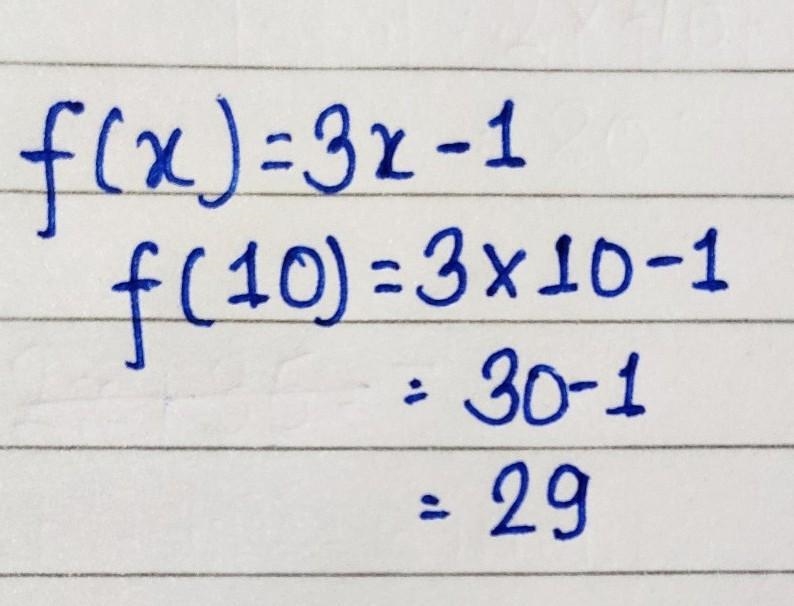 f(x)=3x-1
f(10)=3×10-1
= 30-1
= 29